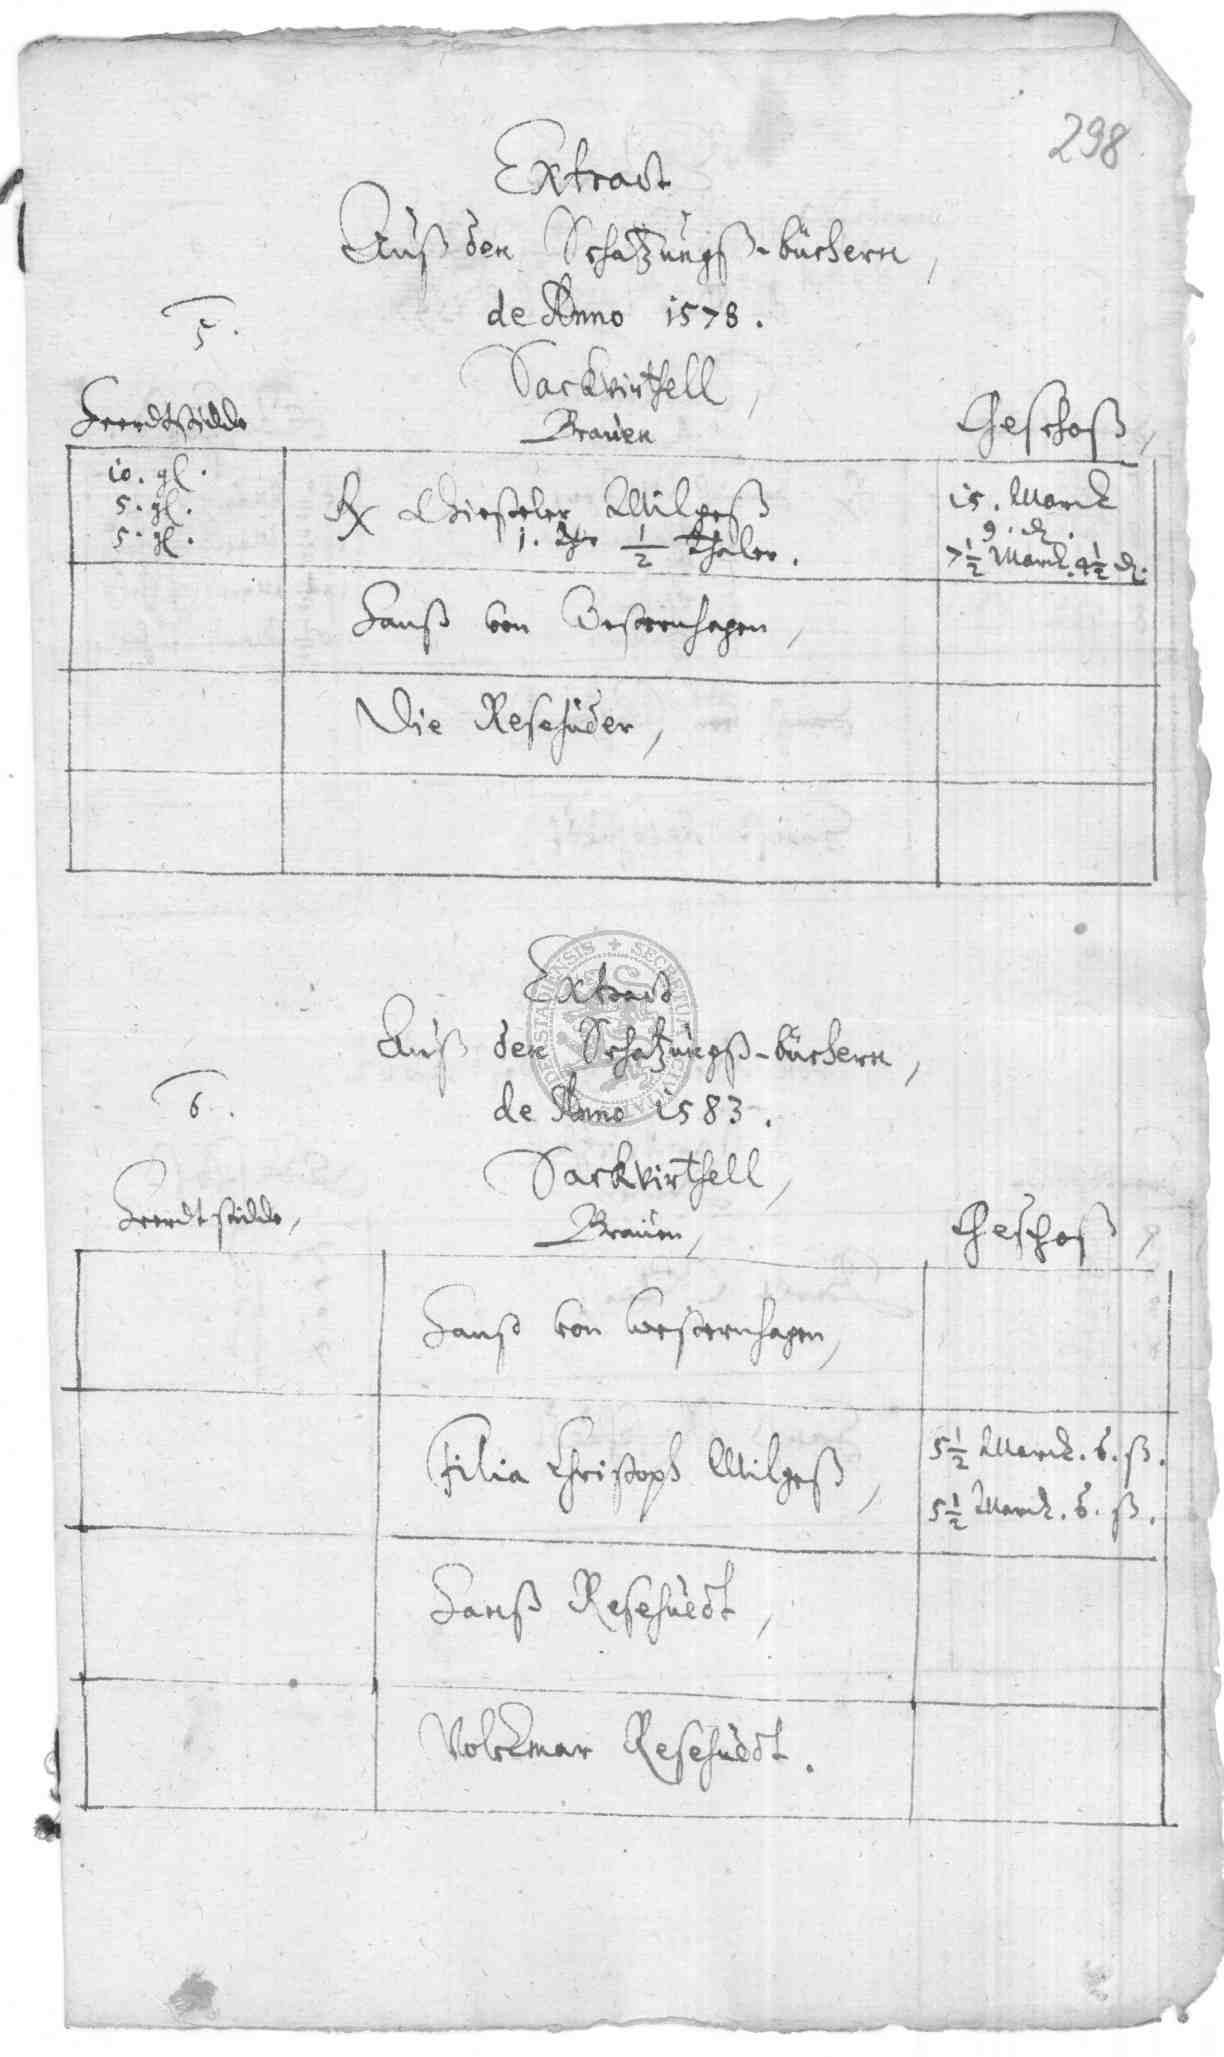 298
Extract
Auß den Schatzungß-büchern,
de Anno 1578.
5.
Sackvirthell,
Heerdtstidde
Brauen
Geschoß,
10. gl.
5. gl.
5. gl.
Gieseler Milgeß
1. Thr ½ Thaler.
15. Marck
9. d.
7½ Marck. 4½ d.
Hanß von Westernhagen,
Die Resehüder,
Extract
Auß den Schatzungß-büchern,
6.
de Anno 1583.
Sackvirthell,
Heerdtstidde,
Brauen,
Geschoß,
Hanß von Westernhagen,
Filia Christoph Milgeß,
5½ Marck. 6. ß.
5½ Marck. 6. ß.
Hanß Resehüedt,
Volckmar Resehüedt.